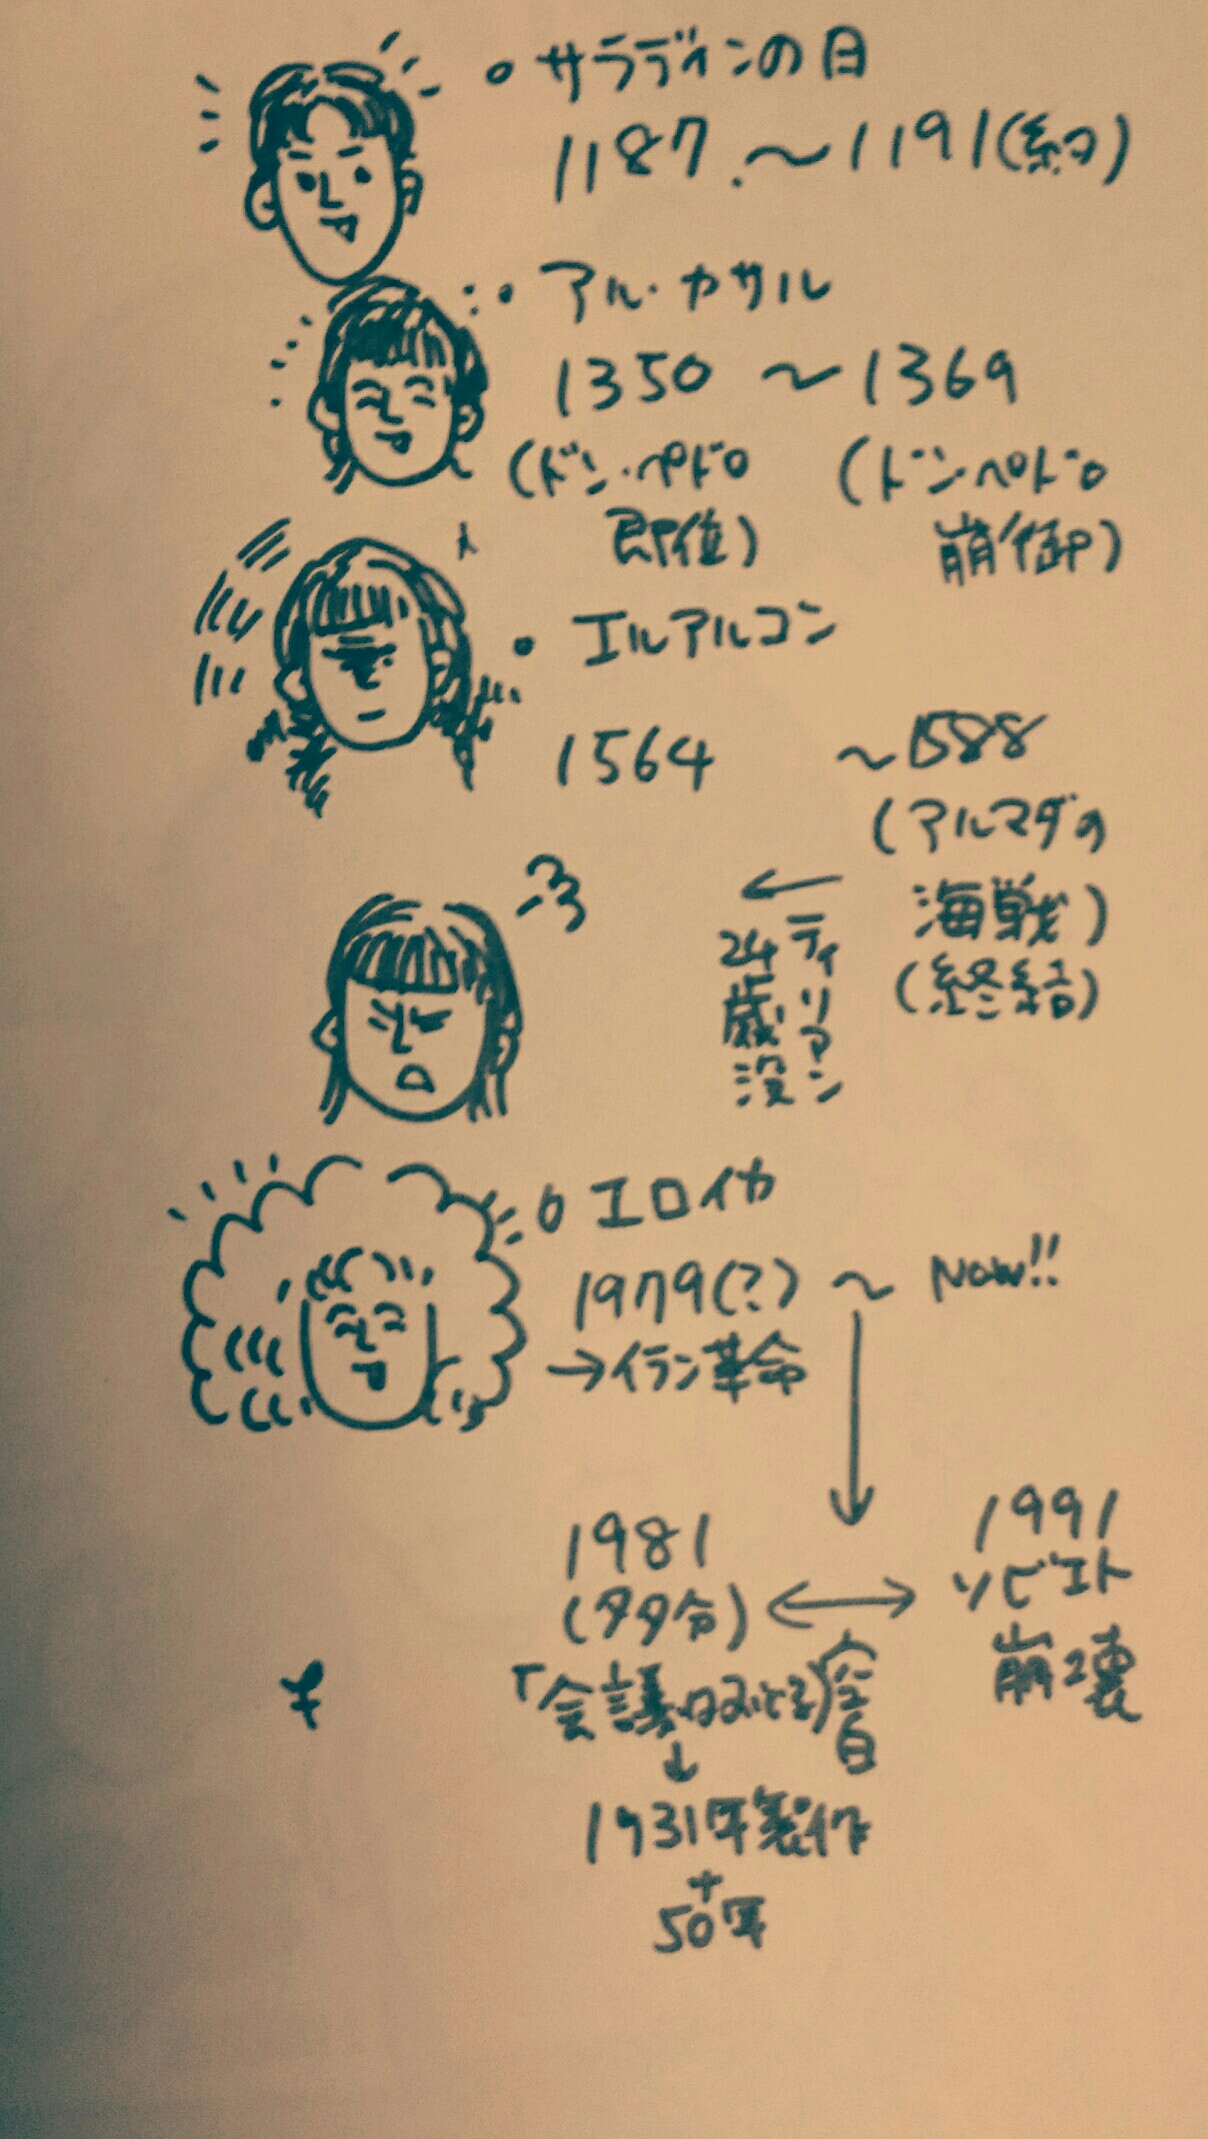 ○サラディンの日
1187.〜1191(約)
・アル・カサル
1350 〜1369
(ドン・ペドロ即位)
(ドンペドロ崩御)
・エルアルコン
1564 〜1588
(アルマダの海戦)
(終結)
←
ティリアン
24歳没
○エロイカ
1979(?) 〜 Now!!
→イラン革命
1981
(多分)
↔
空白
1991
ソビエト
崩壊
「会議はおどる」
↓
1931年製作
+
50年